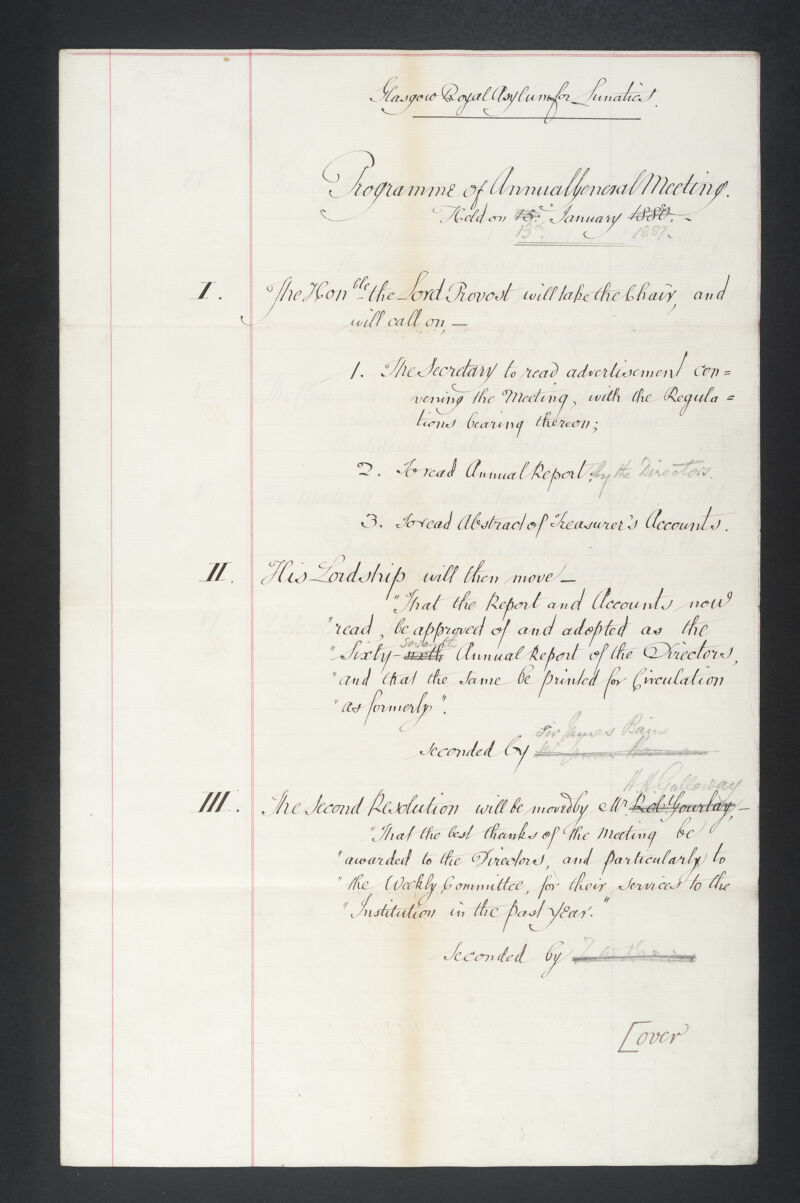 Glasgow Royal Asylum for Lunatics.
Programme of Annual General Meeting.
Held on 15th January 1880.
13th 1881.
I. The Honble the Lord Provost will take the Chair, and
will call on, —
1. The Secretary to read advertisement con=
vening the Meeting, with the Regula=
tions bearing thereon;
2. To read Annual Report, by the Directors.
3. To read Abstract of Treasurer's Accounts.
II. His Lordship will then move —
"That the Report and Accounts now
"read, be approved of and adopted as the
seventh
"Sixty-sixth Annual Report of the Directors,
"and that the same be printed for Circulation
"as formerly".
Sir James Bain
seconded by
H. Galloway
III. The Second Resolution will be moved by Mr. Robt Gourlay, —
"That the best thanks of the Meeting be
"awarded to the Directors, and particularly to
"the Weekly Committee, for their services to the
"Institution in the past year."
seconded by
[over